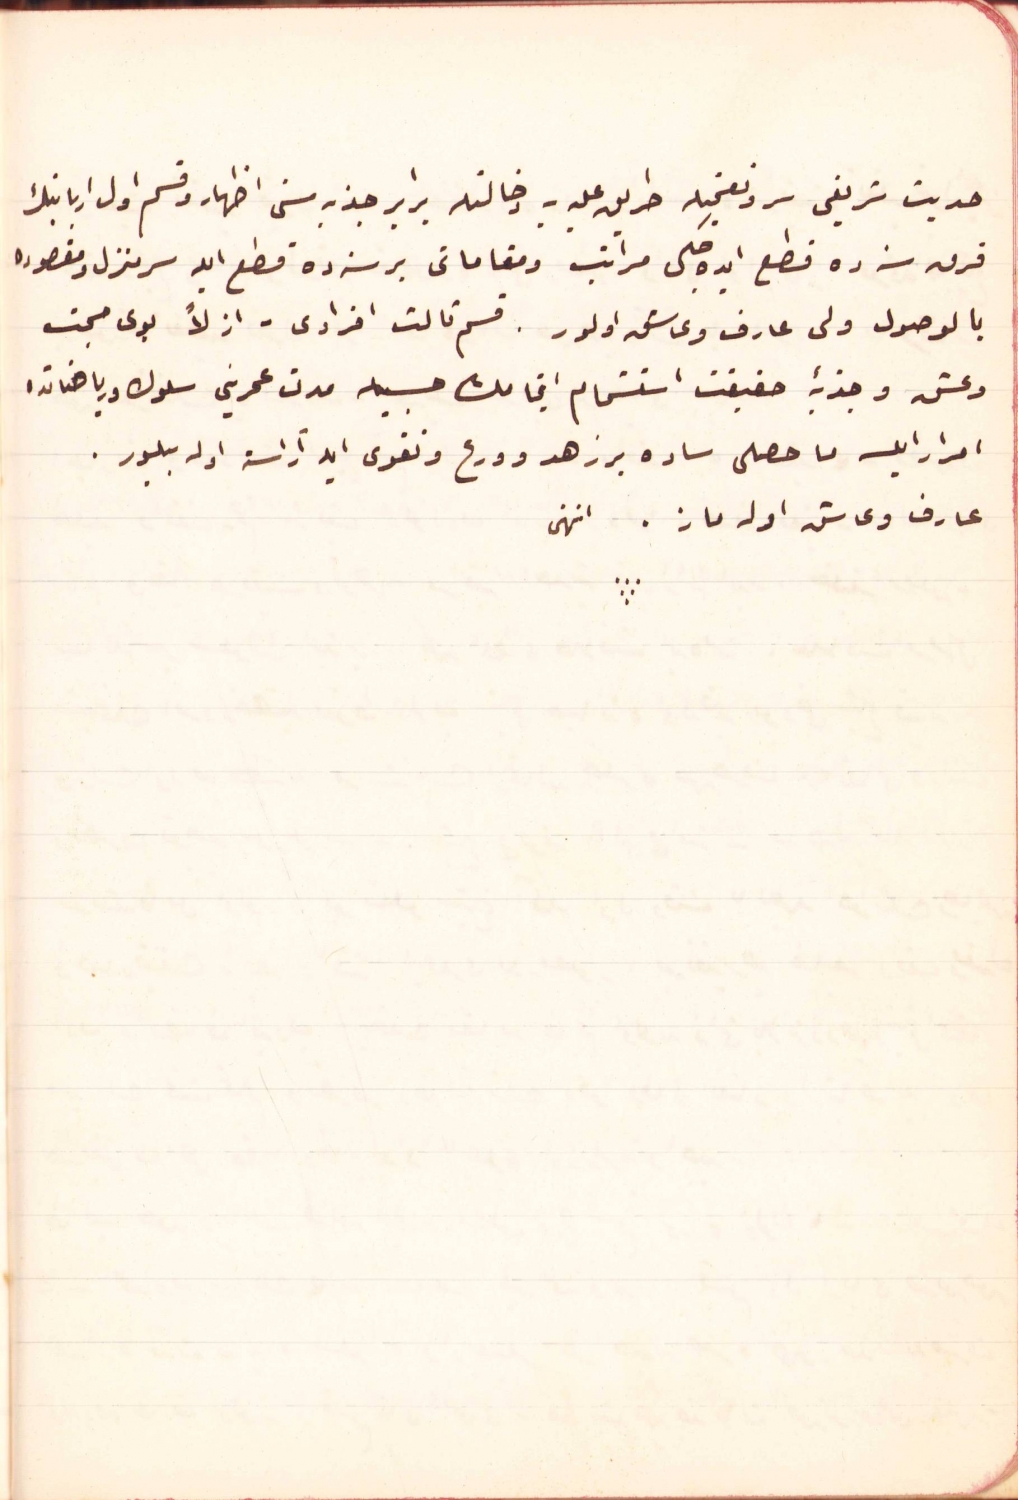 حديث شريفى سر ونفحيله طريق عليه يه دخالتله برابر جذبه سنى اظهار وقسم اول اربابنك
قرق سنه ده قطع ايده جكى مراتب ومقاماتى بر سنه ده قطع ايله سرمنزل مقصوده
بالوصول ولى عارف وعاشق اولور . قسم ثالث افرادى - ازلاً بوى محبت
وعشق وجذبهٔ حقيقت استشمام ايتمامك حسبيله مدت عمرينى سلوك ورياضاتده
امرار ايلسه ما حصلى ساده بر زهد و ورع وتقوى ايله آراسته اوله بيلور .
عارف وعاشق اوله ماز . انتهى